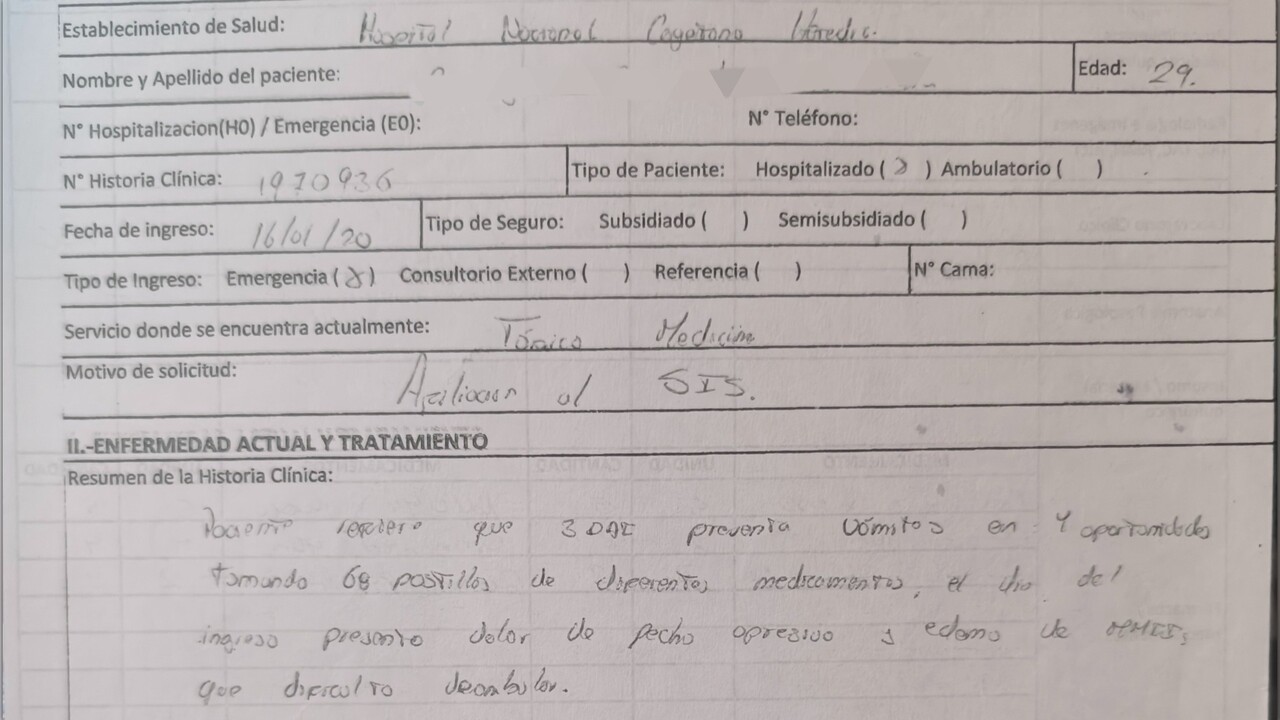 Establecimiento de Salud: Hospital Nacional Cayetano Heredia.
Nombre y Apellido del paciente: Edad: 29.
N° Hospitalizacion(H0) / Emergencia (E0): N° Teléfono:
N° Historia Clínica: 1970936 Tipo de Paciente: Hospitalizado ( x ) Ambulatorio ( )
Fecha de ingreso: 16/01/20 Tipo de Seguro: Subsidiado ( ) Semisubsidiado ( )
Tipo de Ingreso: Emergencia ( x ) Consultorio Externo ( ) Referencia ( ) N° Cama:
Servicio donde se encuentra actualmente: Tópico Medicina
Motivo de solicitud: Afiliacion al SIS.
II.-ENFERMEDAD ACTUAL Y TRATAMIENTO
Resumen de la Historia Clínica:
Paciente refiere que 3 DAI presenta vómitos en 4 oportunidades
tomando 68 pastillas de diferentes medicamentos, el dia del
ingreso presento dolor de pecho opresivo y edema de MMII,
que dificulta deambular.